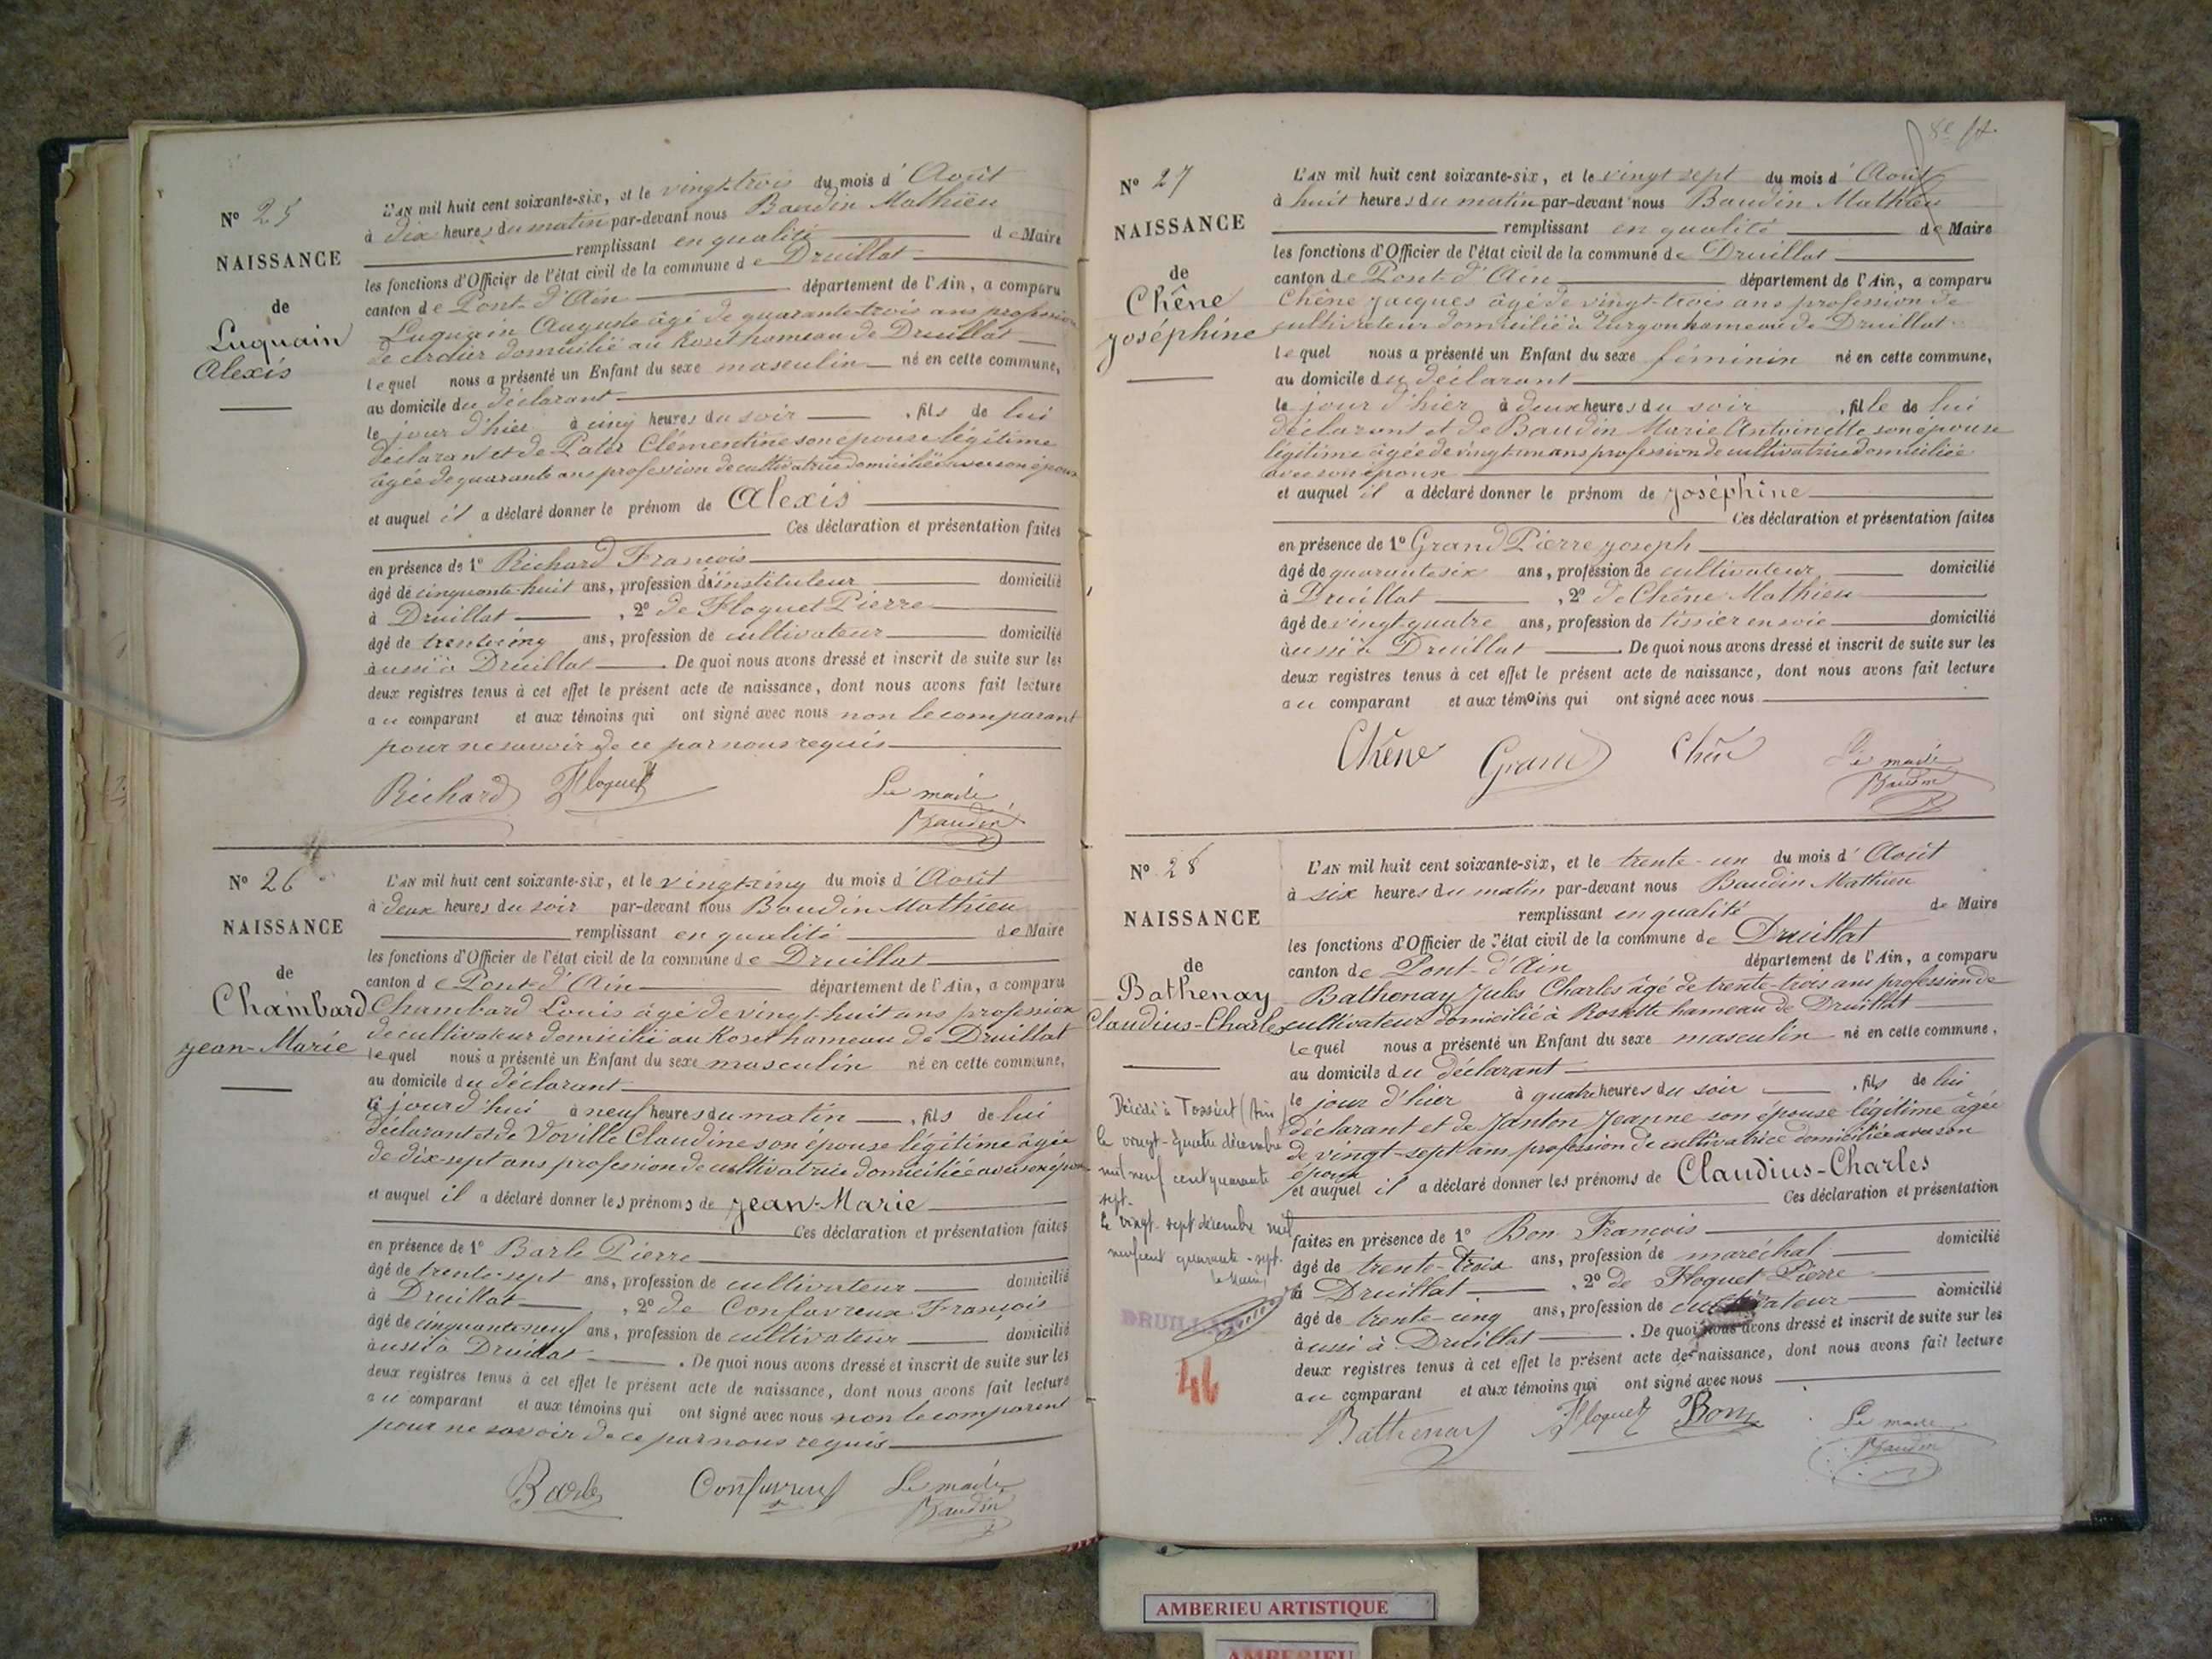 N° 25
NAISSANCE
de
Luquain
Alexis
L'AN mil huit cent soixante-six, et le vingt-trois du mois d'Août
à dix heures du matin par-devant nous Baudin Mathieu
remplissant en qualité de Maire
les fonctions d'Officier de l'état civil de la commune de Druillat
canton de Pont-d'Ain département de l'Ain, a comparu
Luquain Auguste âgé de quarante-trois ans profession
de domicilié au Roset hameau de Druillat
lequel nous a présenté un Enfant du sexe masculin né en cette commune,
au domicile du déclarant
le jour d'hier à cinq heures du soir, fils de lui
déclarant et de Clémentine son épouse légitime
âgée de quarante ans profession de cultivatrice domiciliée avec son époux
et auquel il a déclaré donner le prénom de Alexis
Ces déclaration et présentation faites
en présence de 1° Richard François
âgé de cinquante-huit ans, profession d'instituteur domicilié
à Druillat, 2° de Floquet Pierre
âgé de trente cinq ans, profession de cultivateur domicilié
aussi à Druillat. De quoi nous avons dressé et inscrit de suite sur les
deux registres tenus à cet effet le présent acte de naissance, dont nous avons fait lecture
au comparant et aux témoins qui ont signé avec nous non le comparant
pour ne savoir de ce par nous requis
Richard Floquet Le maire
Baudin
N° 26
NAISSANCE
de
Chambard
Jean-Marie
L'AN mil huit cent soixante-six, et le vingt-cinq du mois d'Août
à deux heures du soir par-devant nous Baudin Mathieu
remplissant en qualité de Maire
les fonctions d'Officier de l'état civil de la commune de Druillat
canton de Pont-d'Ain département de l'Ain, a comparu
Chambard Louis âgé de vingt-huit ans profession
de cultivateur domicilié au Roset hameau de Druillat
lequel nous a présenté un Enfant du sexe masculin né en cette commune,
au domicile du déclarant
le jourd'hui à neuf heures du matin, fils de lui
déclarant et de Voville Claudine son épouse légitime âgée
de dix-sept ans profession de cultivatrice domiciliée avec son époux
et auquel il a déclaré donner les prénoms de Jean-Marie
Ces déclaration et présentation faites
en présence de 1° Barle Pierre
âgé de trente-sept ans, profession de cultivateur domicilié
à Druillat, 2° de Confavreux François
âgé de cinquante neuf ans, profession de cultivateur domicilié
aussi à Druillat. De quoi nous avons dressé et inscrit de suite sur les
deux registres tenus à cet effet le présent acte de naissance, dont nous avons fait lecture
au comparant et aux témoins qui ont signé avec nous non le comparent
pour ne savoir de ce par nous requis
Barle Confavreux Le maire
Baudin
N° 27
NAISSANCE
de
Chêne
Joséphine
L'AN mil huit cent soixante-six, et le vingt sept du mois d'Août
à huit heures du matin par-devant nous Baudin Mathieu
remplissant en qualité de Maire
les fonctions d'Officier de l'état civil de la commune de Druillat
canton de Pont-d'Ain département de l'Ain, a comparu
Chêne Jacques âgé de vingt-trois ans profession de
cultivateur domicilié à Turgon hameau de Druillat
lequel nous a présenté un Enfant du sexe féminin né en cette commune,
au domicile du déclarant
le jour d'hier à deux heures du soir, fille de lui
déclarant et de Baudin Marie Antoinette son épouse
légitime âgée de vingt un ans profession de cultivatrice domiciliée
avec son époux
et auquel il a déclaré donner le prénom de Joséphine
Ces déclaration et présentation faites
en présence de 1° Grand Pierre Joseph
âgé de quarante six ans, profession de cultivateur domicilié
à Druillat, 2° de Chêne Mathieu
âgé de vingt-quatre ans, profession de tissier en soie domicilié
aussi à Druillat. De quoi nous avons dressé et inscrit de suite sur les
deux registres tenus à cet effet le présent acte de naissance, dont nous avons fait lecture
au comparant et aux témoins qui ont signé avec nous
Chêne Grand Chêne Le maire
Baudin
N° 28
NAISSANCE
de
Bathenay
Claudius-Charles
Décédé à Tossiat (Ain)
le vingt-quatre décembre
mil neuf cent quarante
sept.
Le vingt-sept décembre mil
neuf cent quarante-sept.
le Maire
DRUILLAT
46
L'AN mil huit cent soixante-six, et le trente-un du mois d'Août
à six heures du matin par-devant nous Baudin Mathieu
remplissant en qualité de Maire
les fonctions d'Officier de l'état civil de la commune de Druillat
canton de Pont-d'Ain département de l'Ain, a comparu
Bathenay Jules Charles âgé de trente-trois ans profession de
cultivateur domicilié à Rosette hameau de Druillat
lequel nous a présenté un Enfant du sexe masculin né en cette commune,
au domicile du déclarant
le jour d'hier à quatre heures du soir, fils de lui
déclarant et de Janton Jeanne son épouse légitime âgée
de vingt-sept ans profession de cultivatrice domiciliée avec son
époux
et auquel il a déclaré donner les prénoms de Claudius-Charles
Ces déclaration et présentation
faites en présence de 1° Bon François domicilié
âgé de trente-trois ans, profession de maréchal
à Druillat, 2° de Floquet Pierre
âgé de trente-cinq ans, profession de cultivateur domicilié
aussi à Druillat. De quoi nous avons dressé et inscrit de suite sur les
deux registres tenus à cet effet le présent acte de naissance, dont nous avons fait lecture
au comparant et aux témoins qui ont signé avec nous
Bathenay Floquet Bon Le maire
Baudin
AMBERIEU ARTISTIQUE
AMBERIEU